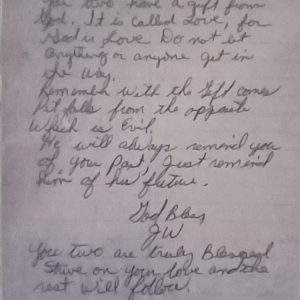 You two have a gift from
God. It is called Love, for
God is Love Do not let
anything or anyone get in
the way.
Remember with the Gift comes
Pit falls from the opposite
Which is Evil.
He will always remind you
of your Past, Just remind
him of his future.
God Bless
JW
You two are truly Blessed
Strive on your love and the
rest will follow.